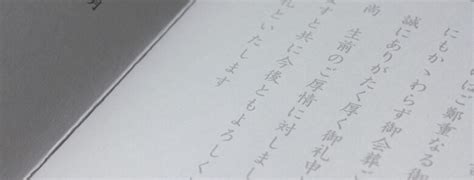 はご鄭重なる御
にもかゝわらず御会葬ご
誠にありがたく厚く御礼申
尚 生前のご厚情に対しまし
ますと共に今後ともよろしく
礼といたします